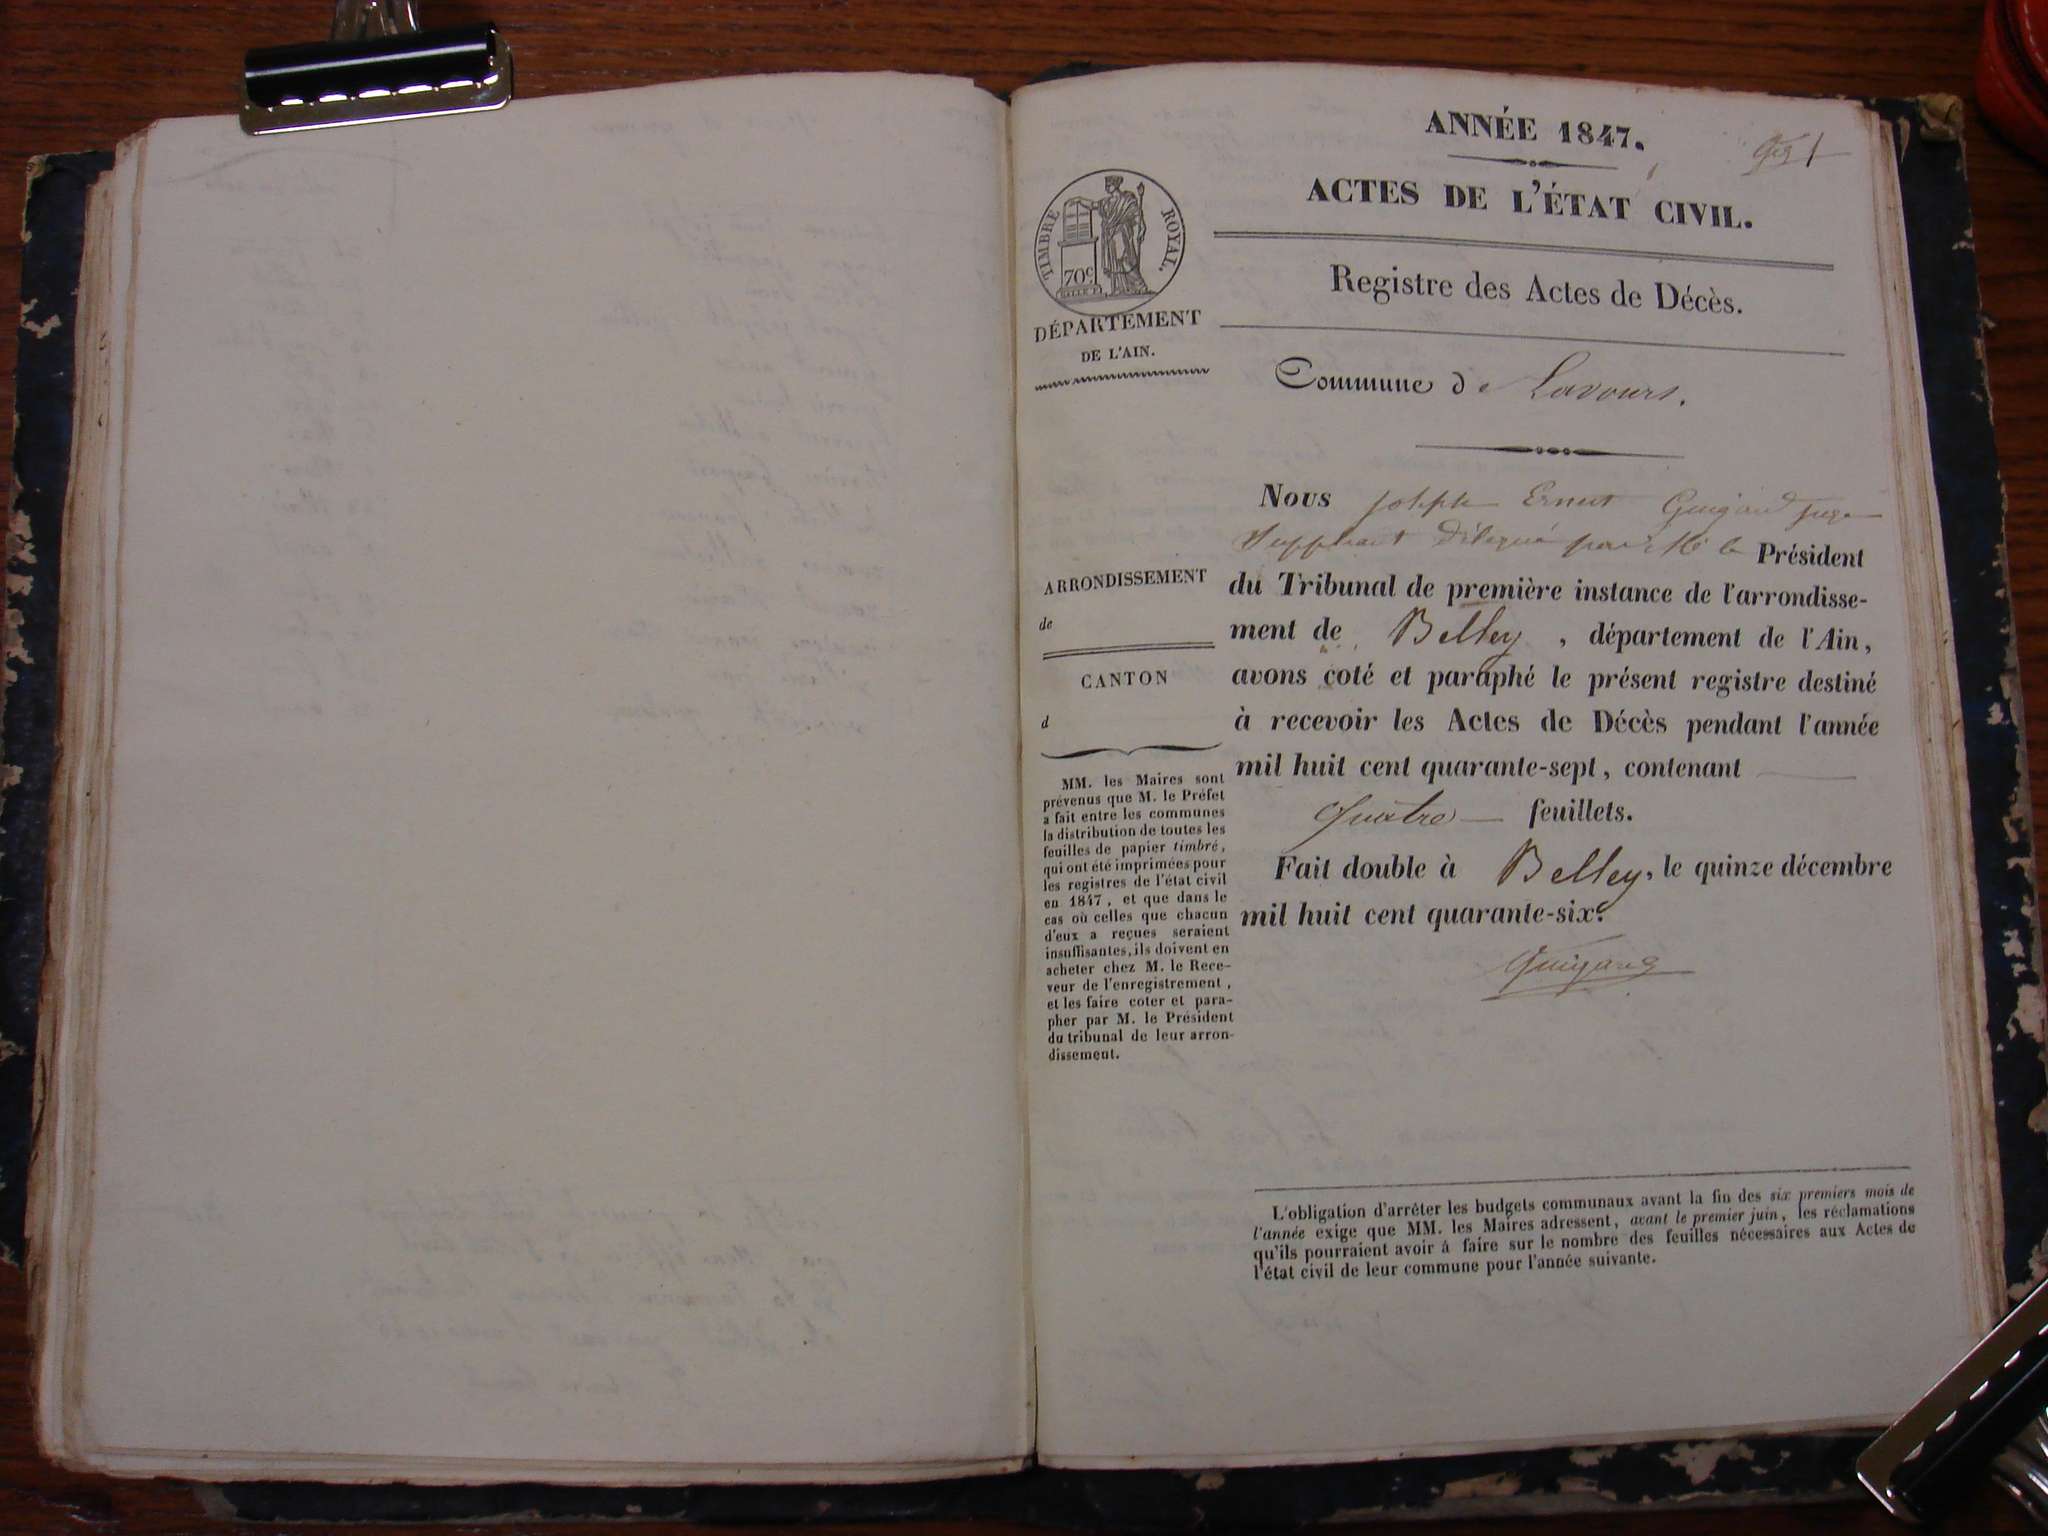 ANNÉE 1847.
1
ACTES DE L'ÉTAT CIVIL.
TIMBRE ROYAL.
70c
DÉPARTEMENT
DE L'AIN.
Registre des Actes de Décès.
Commune de Lavours.
Nous Joseph Ernest Guigard juge
Suppléant Délégué par Mr le Président
du Tribunal de première instance de l'arrondisse-
ment de Belley, département de l'Ain,
avons coté et paraphé le présent registre destiné
à recevoir les Actes de Décès pendant l'année
mil huit cent quarante-sept, contenant
quatre feuillets.
Fait double à Belley, le quinze décembre
mil huit cent quarante-six.
Guigard
ARRONDISSEMENT
de
CANTON
d
MM. les Maires sont
prévenus que M. le Préfet
a fait entre les communes
la distribution de toutes les
feuilles de papier timbré,
qui ont été imprimées pour
les registres de l'état civil
en 1847, et que dans le
cas où celles que chacun
d'eux a reçues seraient
insuffisantes, ils doivent en
acheter chez M. le Rece-
veur de l'enregistrement,
et les faire coter et para-
pher par M. le Président
du tribunal de leur arron-
dissement.
L'obligation d'arrêter les budgets communaux avant la fin des six premiers mois de
l'année exige que MM. les Maires adressent, avant le premier juin, les réclamations
qu'ils pourraient avoir à faire sur le nombre des feuilles nécessaires aux Actes de
l'état civil de leur commune pour l'année suivante.